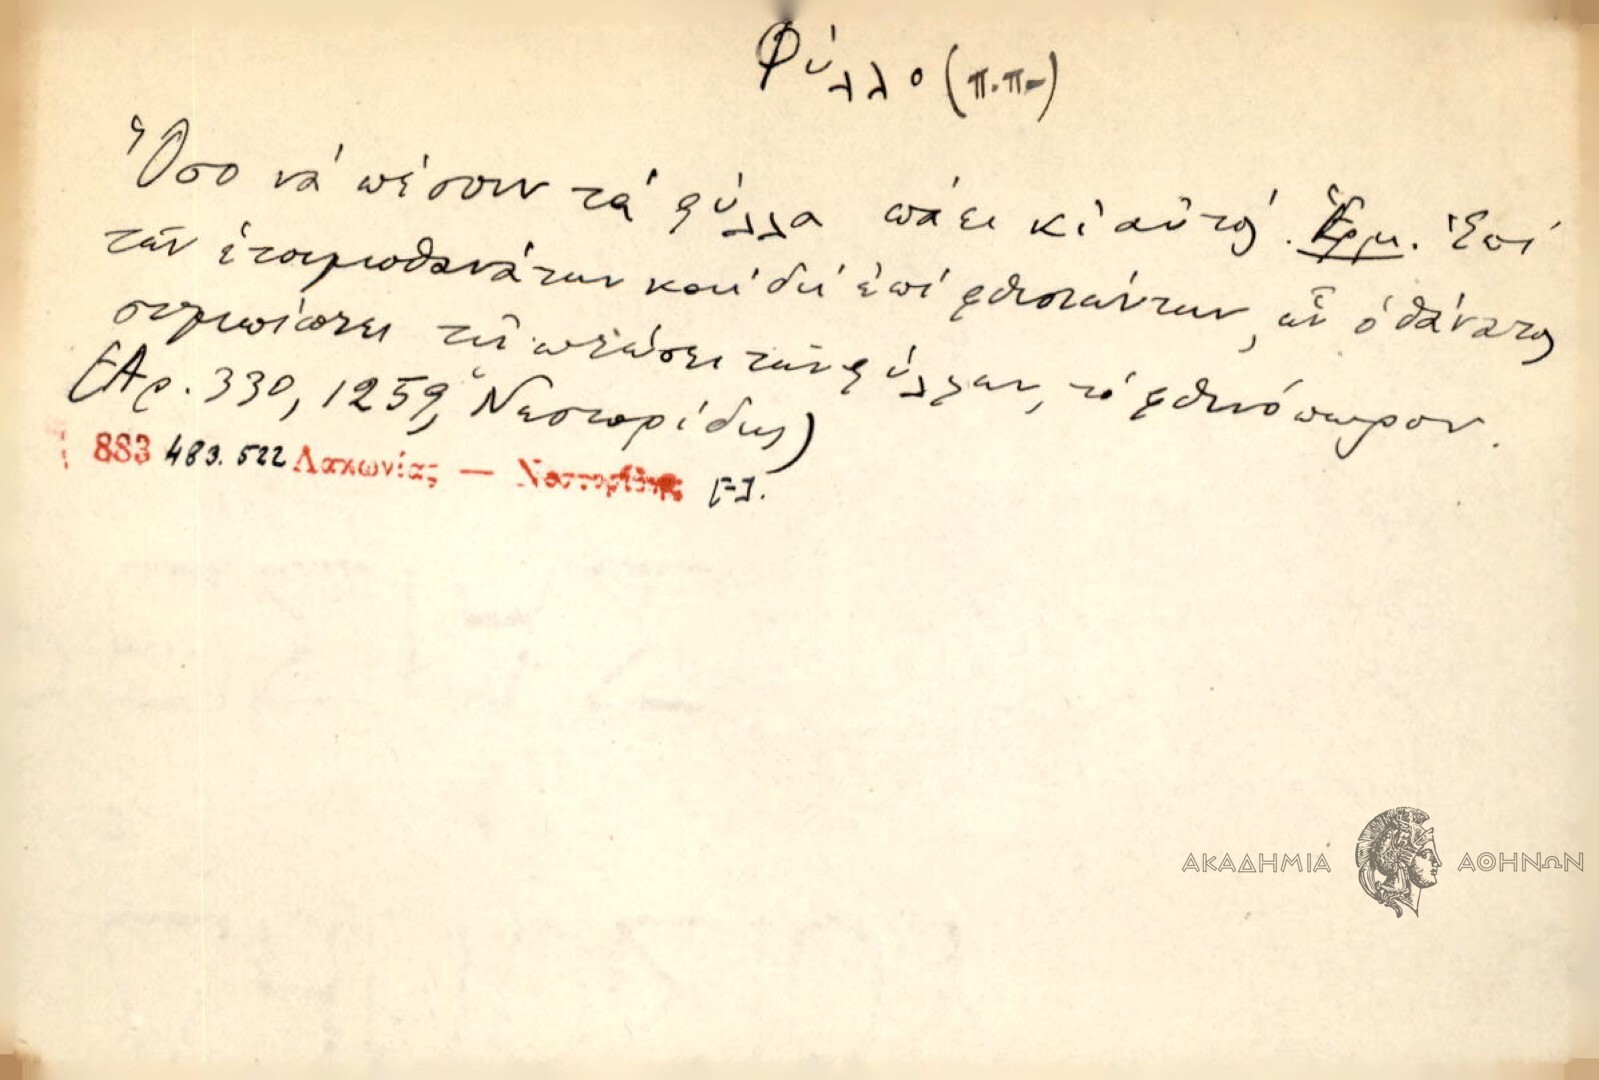 Φύλλο (π.π.)
Ὅσο νά πέσουν τά φύλλα πάει κι αὐτός. Ἑρμ. Ἐπί
τῶν ἑτοιμοθανάτων καί δή ἐπί φθισιώντων, ὧν ὁ θάνατος
συμπίπτει τῇ πτώσει τῶν φύλλων, τό φθινόπωρον.
(Ἀρ. 330, 1259, Νεστορίδης)
883 483. 522 Λακωνίας — Νεστορίδης
ΑΚΑΔΗΜΙΑ ΑΘΗΝΩΝ